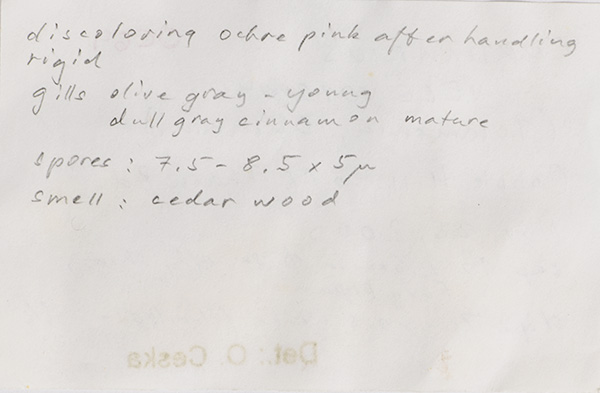 discoloring ochre pink after handling
rigid
gills olive gray - young
dull gray cinnamon mature
spores: 7.5 - 8.5 x 5µ
smell: cedar wood
Det.: O. Ceska